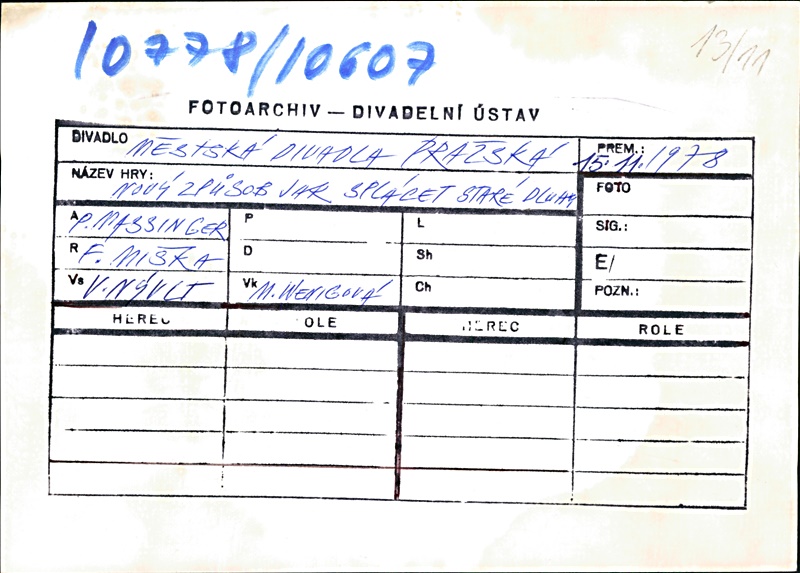 10778/10607
13/11
FOTOARCHIV — DIVADELNÍ ÚSTAV
DIVADLO MĚSTSKÁ DIVADLA PRAŽSKÁ
PREM.: 15.11.1978
NÁZEV HRY: NOVÝ ZPŮSOB JAK SPLÁCET STARÉ DLUHY
FOTO
A P. MASSINGER P L SIG.:
R F. MIŠKA D Sh E/
Vs V. NÝVLT Vk M. WENIGOVÁ Ch POZN.:
HEREC OLE HEREC ROLE